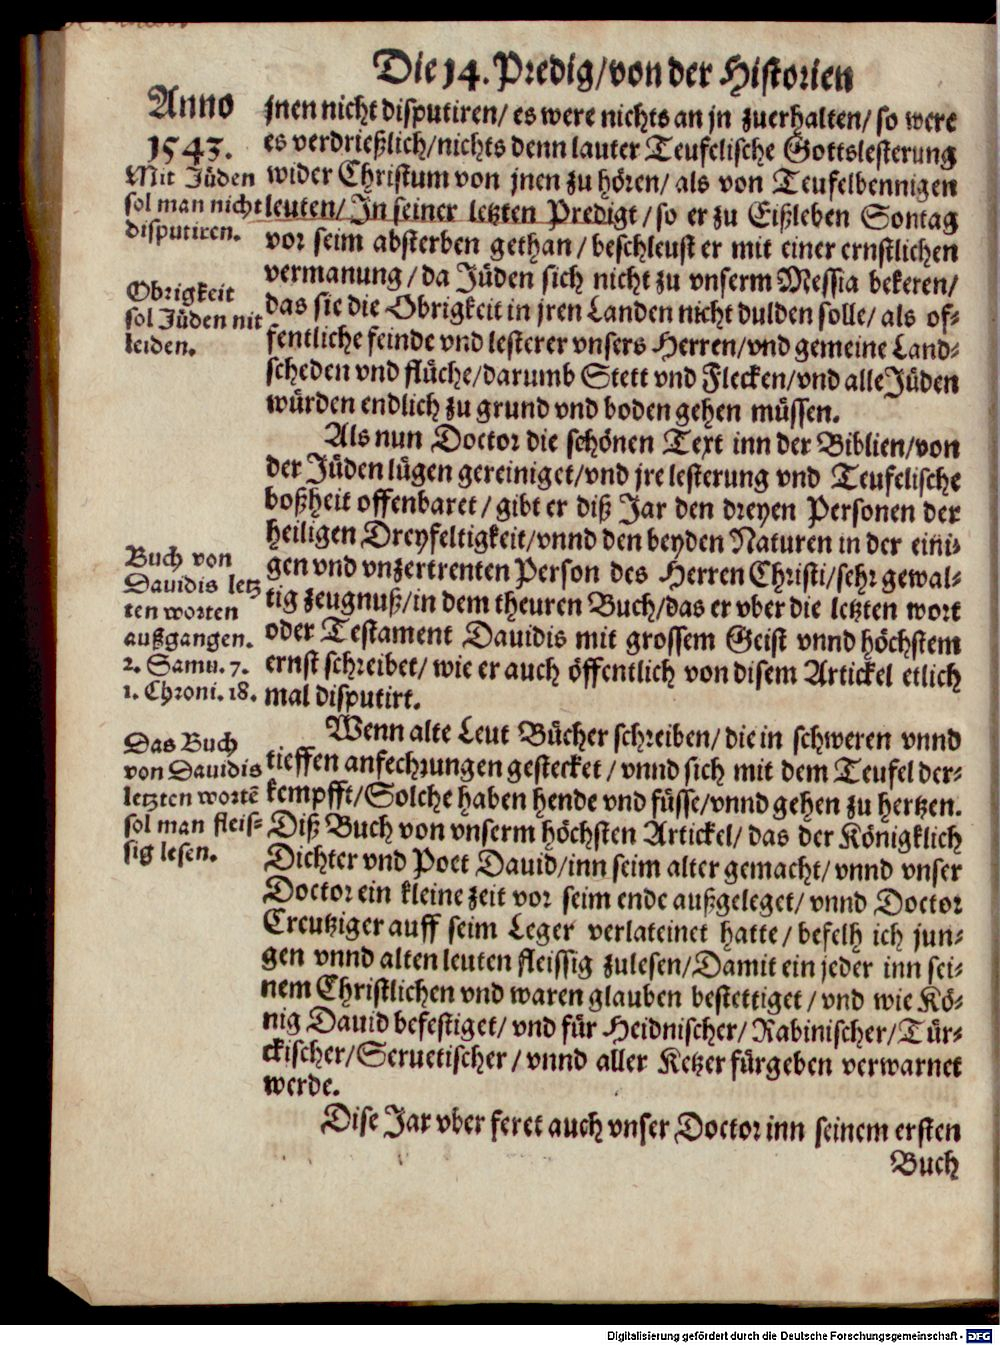 Die 14. Predig/von der Historien
Anno
1543.
Mit Jüden
sol man nicht
disputiren.
Obrigkeit
sol Jüden nit
leiden.
Buch von
Dauidis letz
ten worten
außgangen.
2. Samu. 7.
1. Chroni. 18.
Das Buch
von Dauidis
letzten wortē
sol man fleis-
sig lesen.
jnen nicht disputiren/ es were nichts an jn zuerhalten/ so were
es verdrießlich/nichts denn lauter Teufelische Gottslesterung
wider Christum von jnen zu hören/ als von Teufelbennigen
leuten/ In seiner letzten Predigt/so er zu Eißleben Sontag
vor seim absterben gethan/ beschleust er mit einer ernstlichen
vermanung/da Jüden sich nicht zu vnserm Messia bekeren/
das sie die Obrigkeit in jren Landen nicht dulden solle/ als of-
fentliche feinde vnd lesterer vnsers Herren/vnd gemeine Land-
scheden vnd flüche/darumb Stett vnd Flecken/vnd alle Jüden
würden endlich zu grund vnd boden gehen müssen.
Als nun Doctor die schönen Text inn der Biblien/von
der Jüden lügen gereiniget/vnd jre lesterung vnd Teufelische
boßheit offenbaret/ gibt er diß Jar den dreyen Personen der
heiligen Dreyfeltigkeit/vnnd den beyden Naturen in der eini-
gen vnd vnzertrenten Person des Herren Christi/sehr gewal-
tig zeugnuß/in dem theuren Buch/das er vber die letzten wort
oder Testament Dauidis mit grossem Geist vnnd höchstem
ernst schreibet/ wie er auch öffentlich von disem Artickel etlich
mal disputirt.
Wenn alte Leut Bücher schreiben/ die in schweren vnnd
tieffen anfechtungen gestecket/ vnnd sich mit dem Teufel der-
kempfft/Solche haben hende vnd füsse/vnnd gehen zu hertzen.
Diß Buch von vnserm höchsten Artickel/ das der Königklich
Dichter vnd Poet Dauid/inn seim alter gemacht/ vnnd vnser
Doctor ein kleine zeit vor seim ende außgeleget/ vnnd Doctor
Creutziger auff seim Leger verlateinet hatte/ befelh ich jun-
gen vnnd alten leuten fleissig zulesen/Damit ein jeder inn sei-
nem Christlichen vnd waren glauben bestettiget/ vnd wie Kö-
nig Dauid befestiget/ vnd für Heidnischer/ Rabinischer/Tür-
ckischer/Seruetischer/ vnnd aller Ketzer fürgeben verwarnet
werde.
Dise Jar vber feret auch vnser Doctor inn seinem ersten
Buch
Digitalisierung gefördert durch die Deutsche Forschungsgemeinschaft - DFG